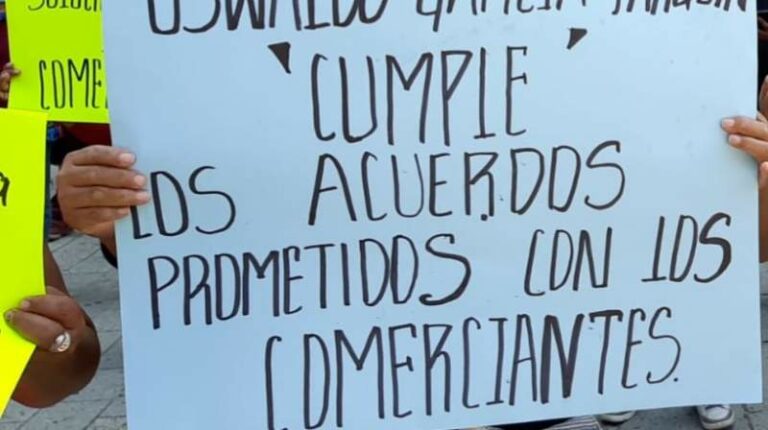 OSWALDO GARCIA
"CUMPLE"
LOS ACUERDOS
PROMETIDOS CON LOS
COMERCIANTES.
COME